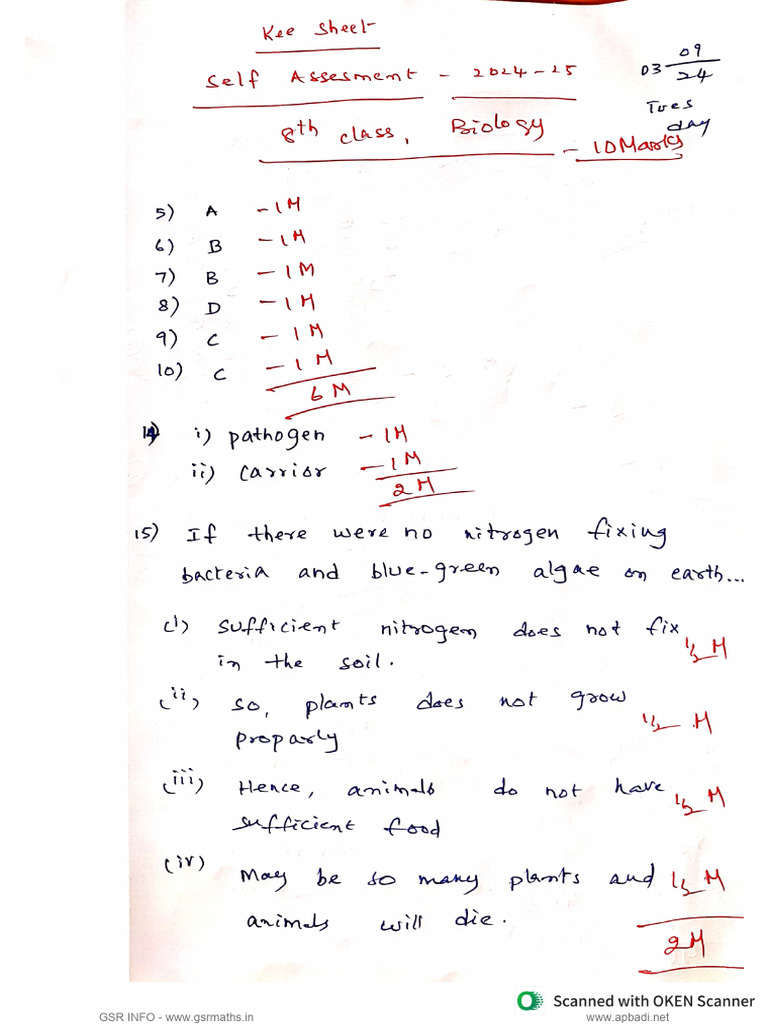 Kee Sheet
Self Assesment - 2024-25
03 09/24
Tues
day
8th class, Biology - 10 Marks
5) A - 1M
6) B - 1M
7) B - 1M
8) D - 1M
9) C - 1M
10) C - 1M
6M
14) i) pathogen - 1M
ii) carrior - 1M
2M
15) If there were no nitrogen fixing
bacteria and blue-green algae on earth...
(i) sufficient nitrogen does not fix
in the soil. ½ M
(ii) so, plants does not grow
proparly ½ M
(iii) Hence, animals do not have
sufficient food ½ M
(iv) May be so many plants and
animals will die. ½ M
2M
Scanned with OKEN Scanner
GSR INFO - www.gsrmaths.in
www.apbadi.net